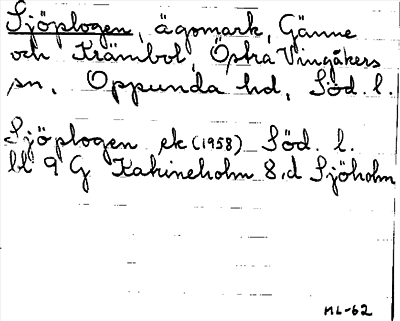 Sjöplogen, ägomark, Gänne
och Krämbol, Östra Vingåkers
sn, Oppunda hd, Söd. l.
Sjöplogen ek (1958) Söd. l.
bl 9 G Katrineholm 8,d Sjöholm
ML-62